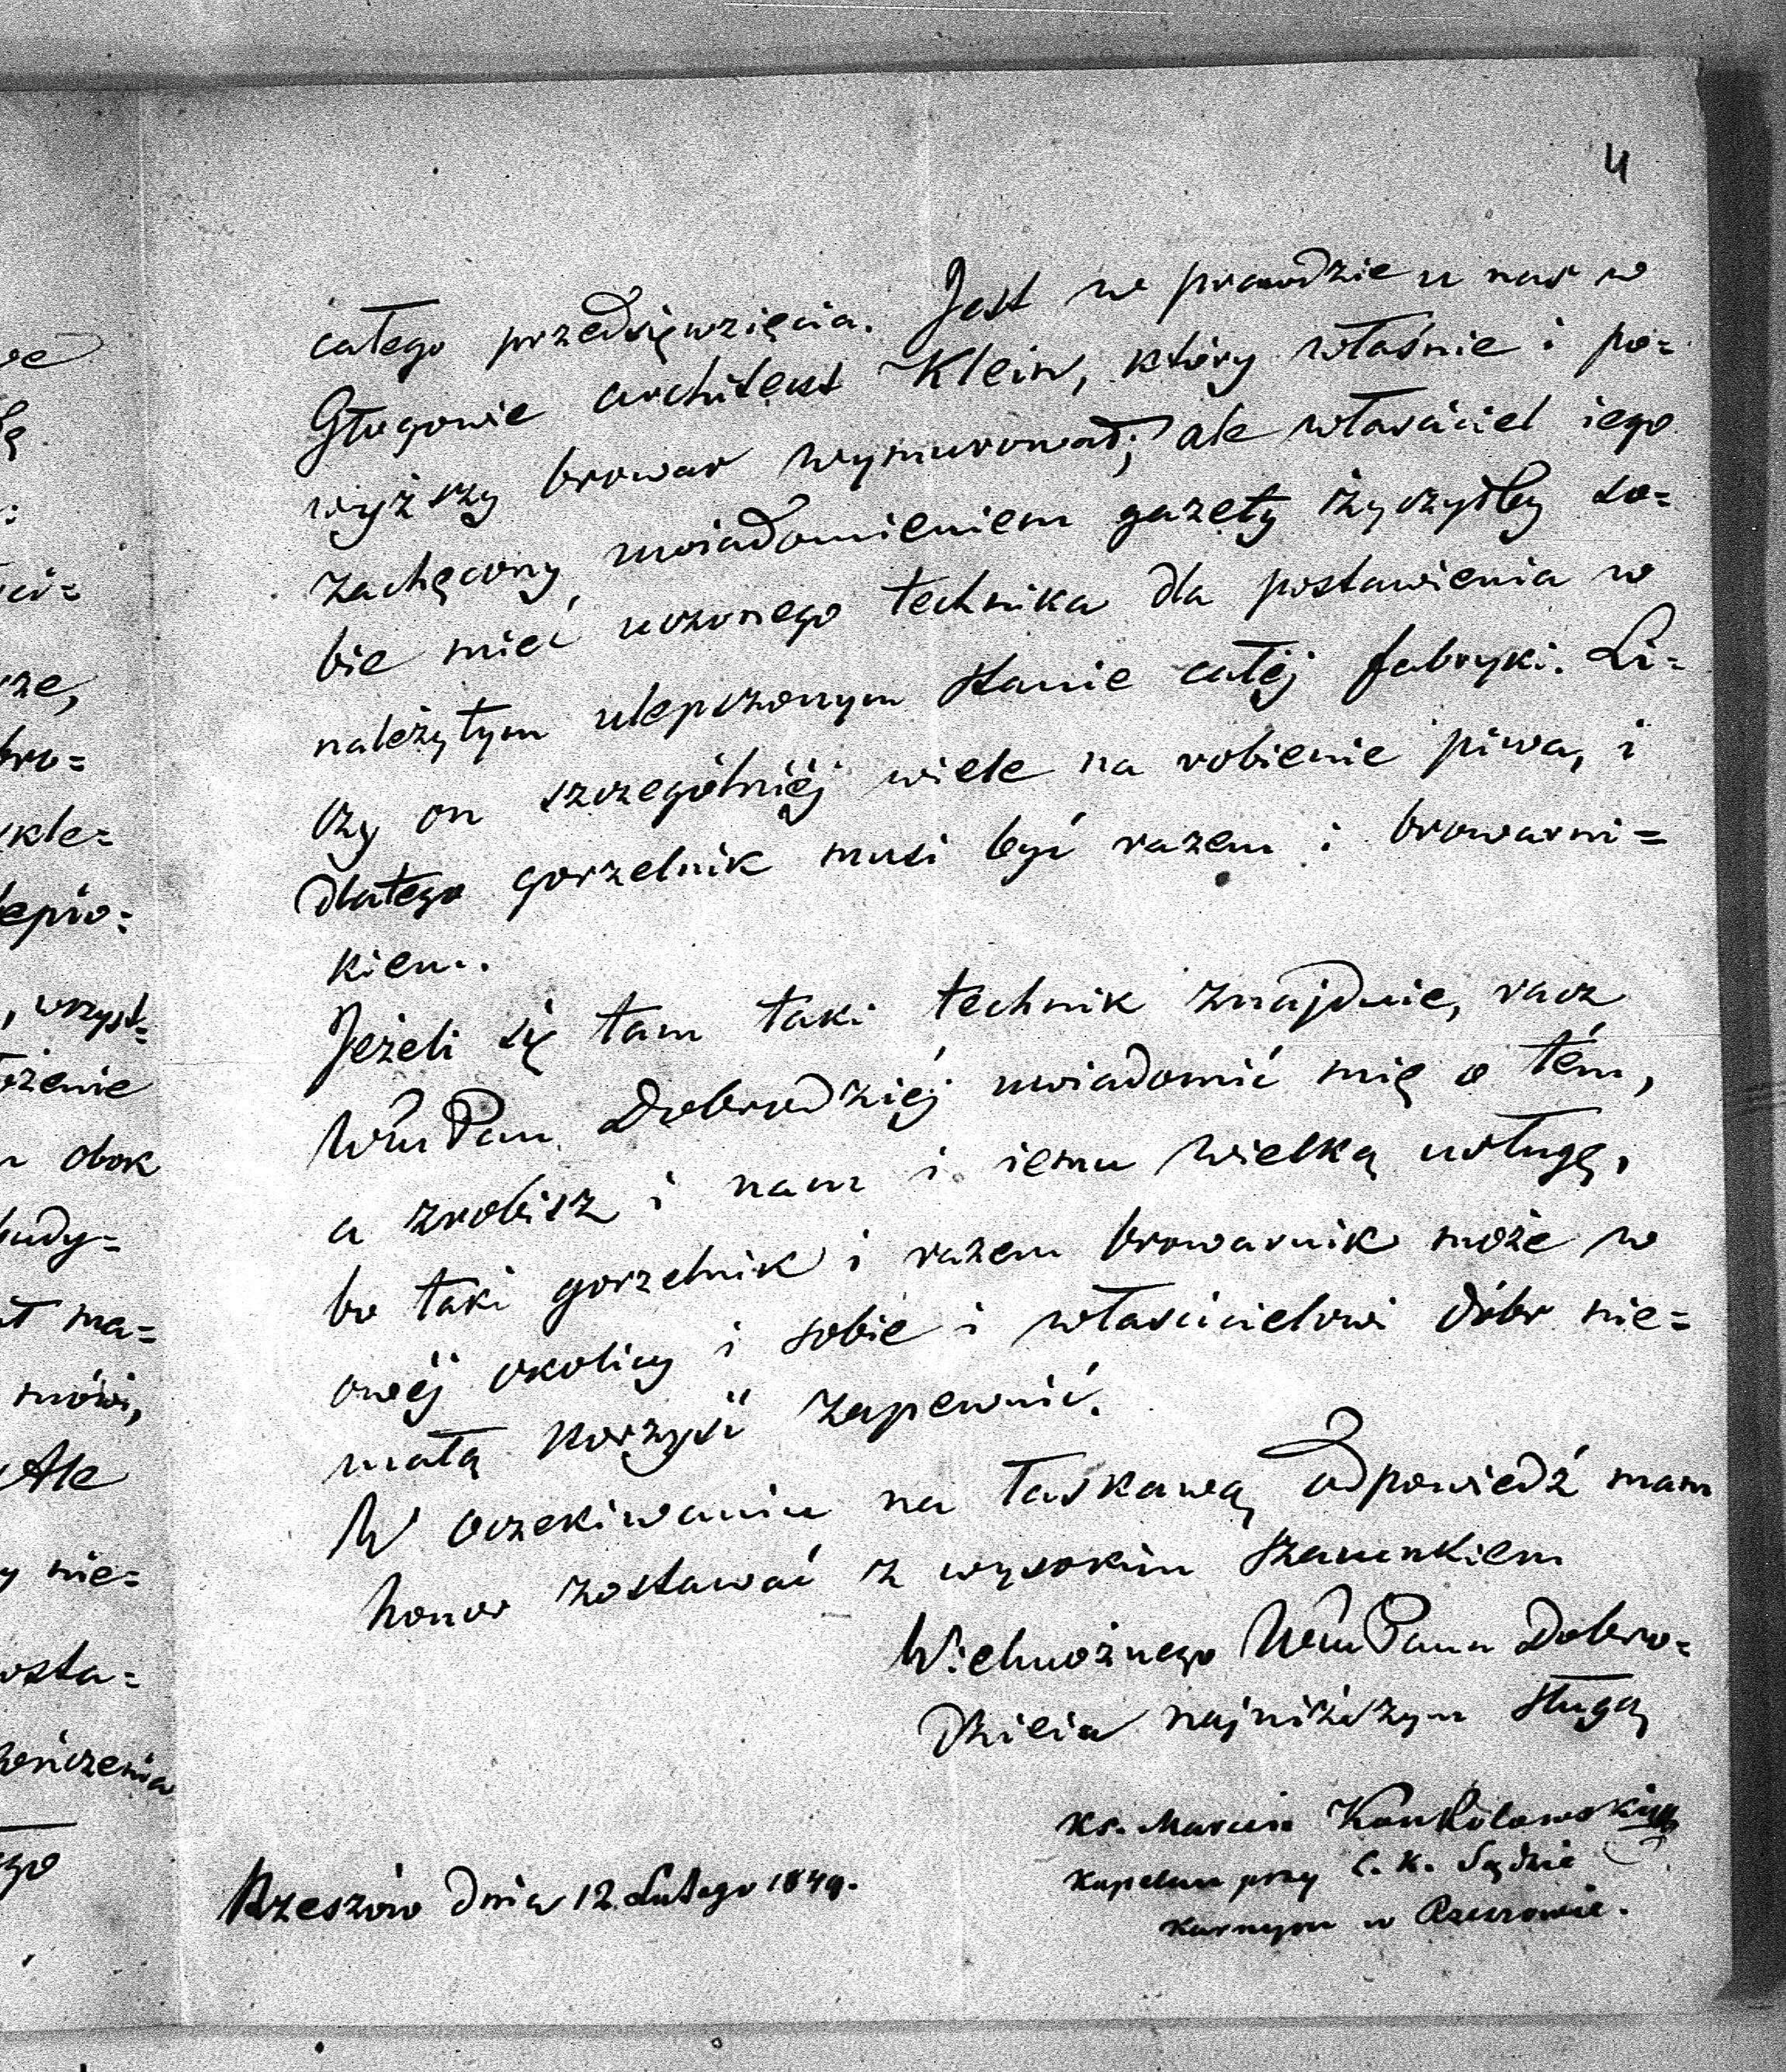 4
całego przedsięwzięcia. Jest w prawdzie u nas w
Głogowie architekt Klein, który właśnie i po=
wyższy browar wymurował; ale właściciel iego
zachęcony uwiadomieniem gazety życzyłby so=
bie mieć uczonego technika dla postawienia w
należytym ulepszonym stanie całéj fabryki. Li=
czy on szczególniéj wiele na robienie piwa, i
dlatego gorzelnik musi być razem i browarni=
kiem.
Jeżeli się tam taki technik znajduie, racz
WmPan Dobrodziéj uwiadomić mię o tém,
a zrobisz i nam i iemu wielką usługę,
bo taki gorzelnik i razem browarnik może w
owéj okolicy i sobie i właścicielowi dóbr nie=
małą korzyść zapewnić.
W oczekiwaniu na łaskawą odpowiedź mam
honor zostawać z wysokim szacunkiem
Wielmożnego WmPana Dobro=
dzieia najniższym sługą
Ks. Marcin
kapelan przy C. K. Sądzie
karnym w Rzeszowie.
Rzeszów dnia 12. Lutego 1849.
we
ze,
bro=
kle=
lepio=
, wszyst=
ożenie
obok
budy=
ma=
mówi,
Ale
nie=
osta=
kończenia